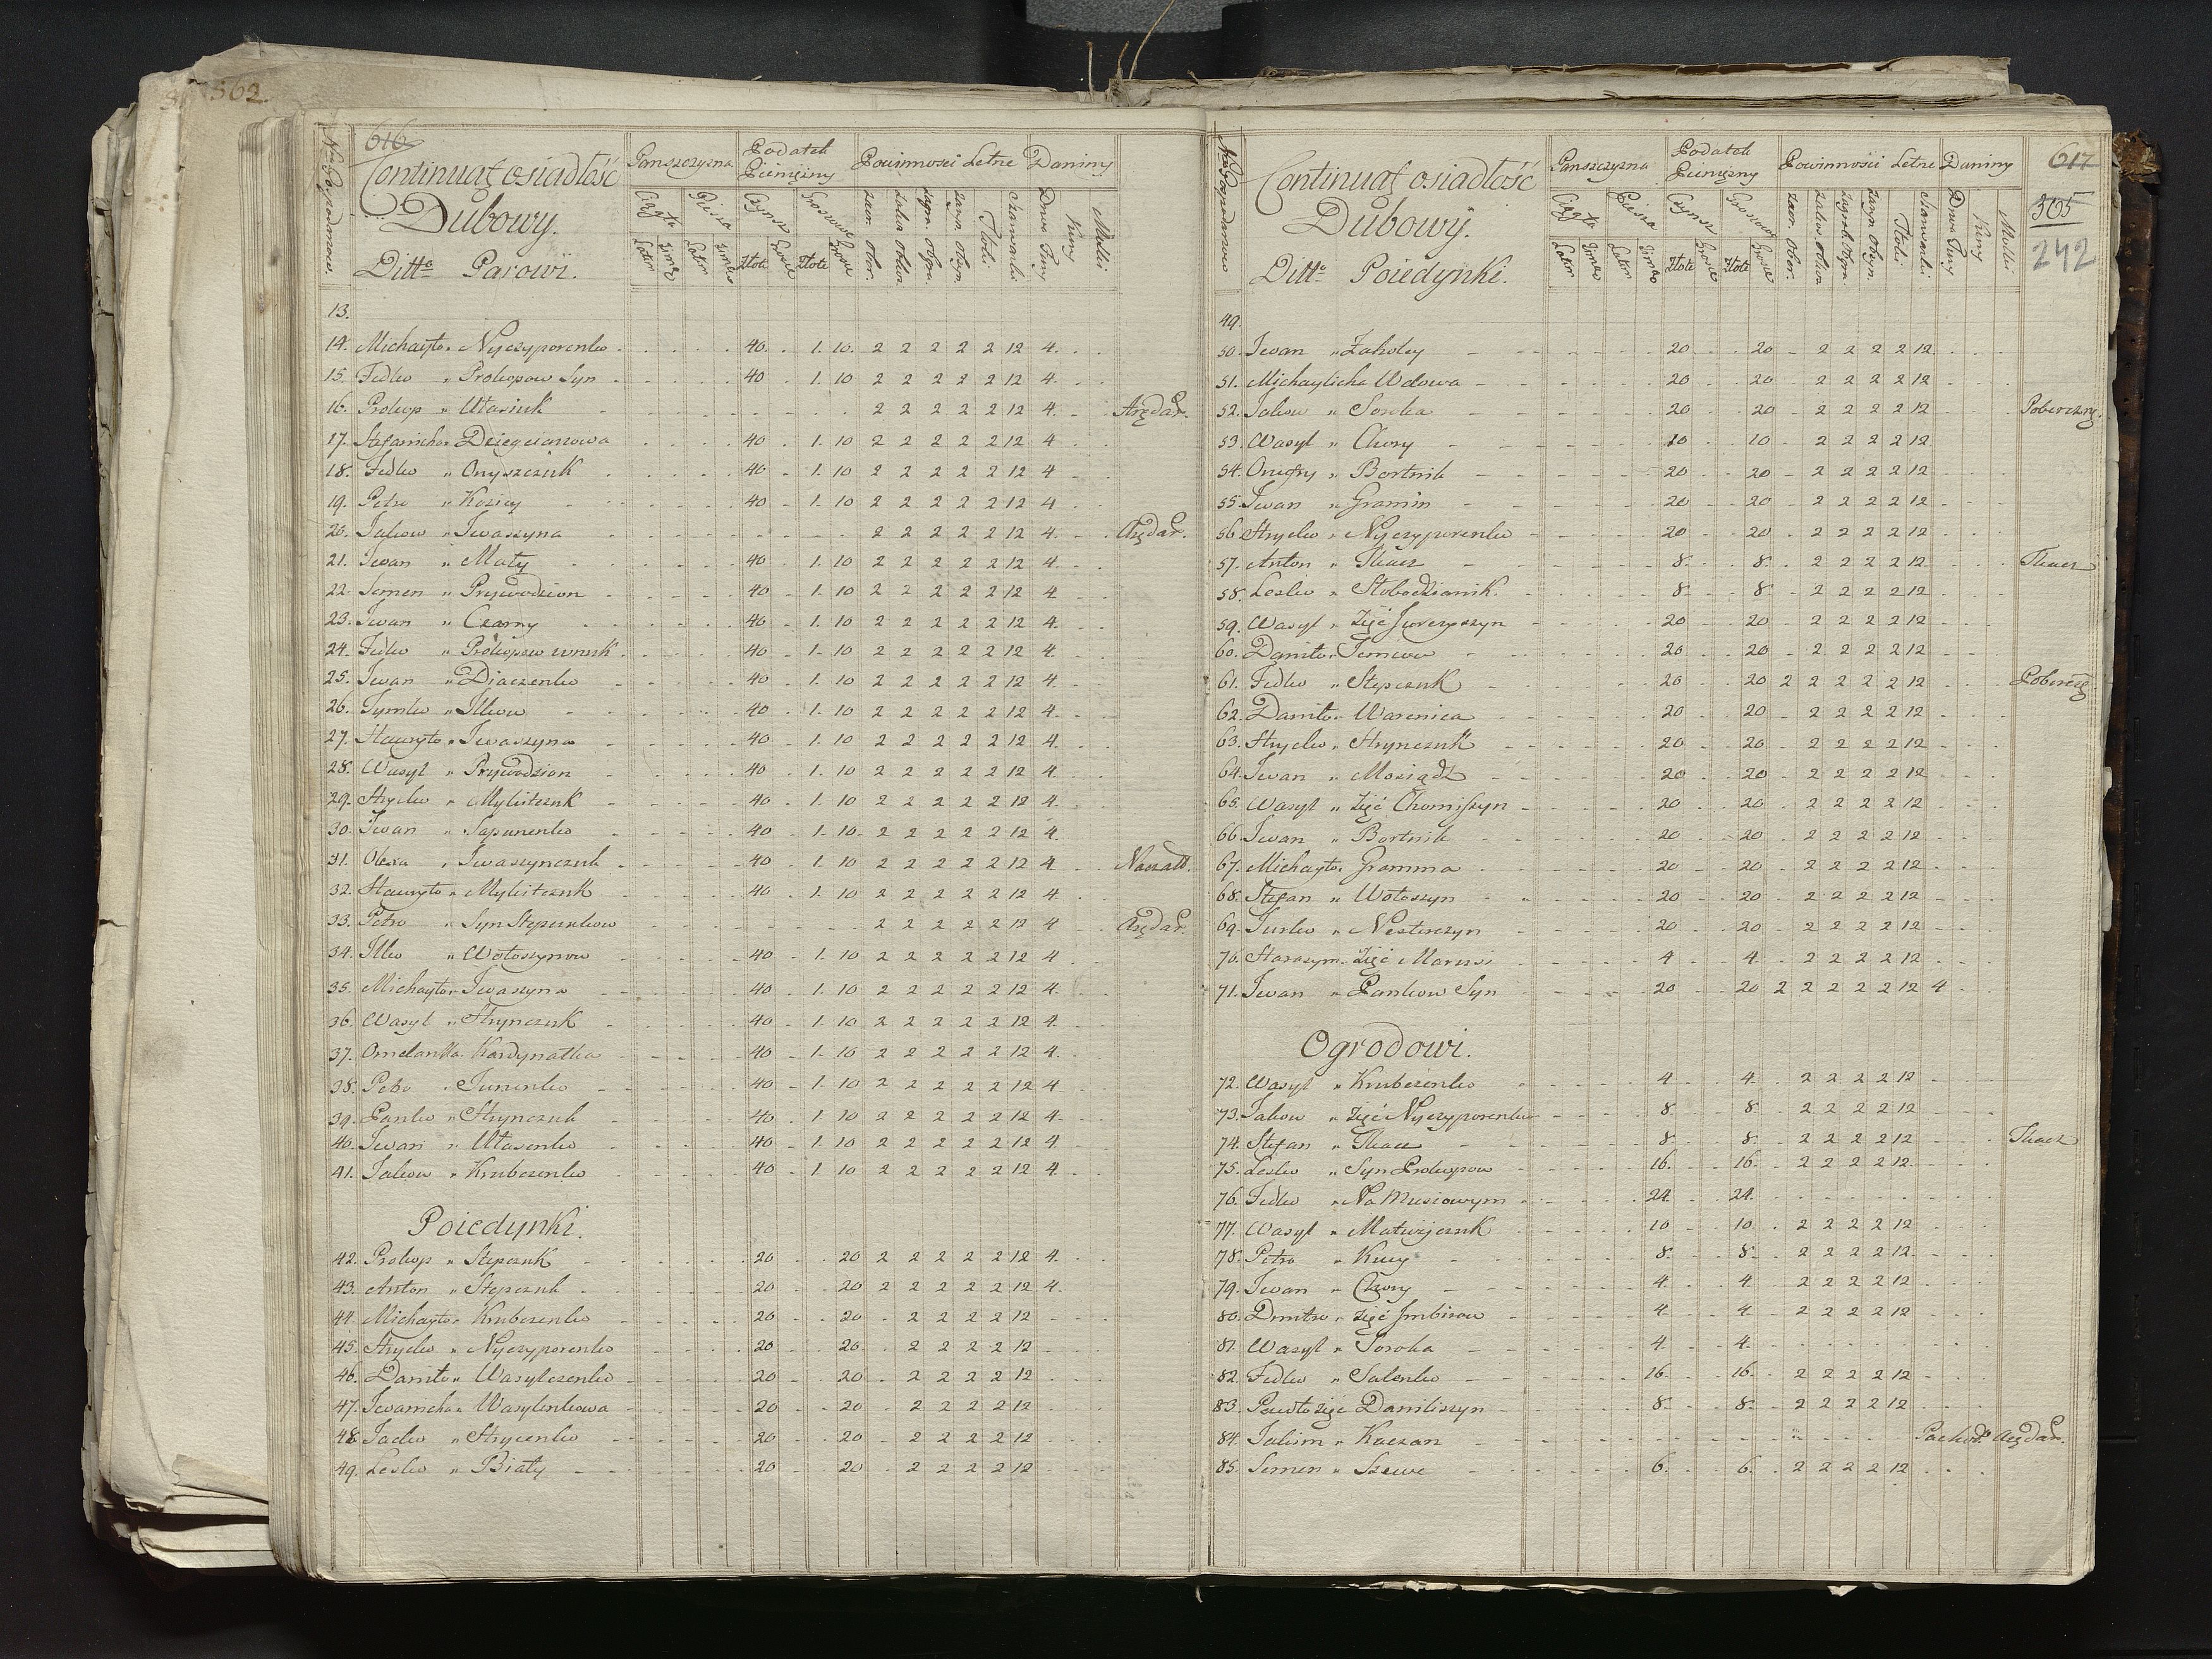 562.
616
No Gospodarzow
Continuat osiadłość
Dubowy.
Ditto Parowi.
Panszczyzna
Podatek Pieniężny
Powinnosci Letne
Daniny
Ciągła
Piesza
Czynsz
Groszowe
Latem
Zimą
Latem
Zimą
Złote
Grosze
Złote
Grosze
Tłoki
13.
14. Michayło " Nyczyporenko 40. 1. 10. 2 2 2 2 2 12 4.
15. Fedko " Prokopow Syn 40 1. 10 2 2 2 2 2 12 4.
16. Prokop " Własiuk 2 2 2 2 2 12 4. Arędar.
17. Stefanicha " Dziegciarzowa 40 1. 10 2 2 2 2 2 12 4
18. Fedko " Onyszczuk 40 1. 10 2 2 2 2 2 12 4
19. Petro " Koziey 40 1. 10 2 2 2 2 2 12 4
20. Jakow " Iwaszyna 2 2 2 2 2 12 4. Arędar.
21. Iwan " Mały 40 1. 10 2 2 2 2 2 12 4.
22. Semen " Prywodzion 40 1. 10 2 2 2 2 2 12 4
23. Iwan " Czarny 40 1. 10 2 2 2 2 2 12 4.
24. Fedko " Prokopow wnuk 40 1. 10 2 2 2 2 2 12 4.
25. Iwan " Diaczenko 40 1. 10 2 2 2 2 2 12 4.
26. Tymko " Ilkow 40 1. 10 2 2 2 2 2 12 4.
27. Hawryło " Iwaszyna 40 1. 10 2 2 2 2 2 12 4.
28. Wasyl " Prywodzion 40 1. 10 2 2 2 2 2 12 4
29. Hryćko " Mykitczuk 40 1. 10 2 2 2 2 2 12 4
30. Iwan " Sapunenko 40 1. 10 2 2 2 2 2 12 4
31. Olexa " Iwaszynczuk 40 1. 10 2 2 2 2 2 12 4
32. Hawryło " Mykitczuk 40 1. 10 2 2 2 2 2 12 4
33. Petro " Syn Stepczukow 2 2 2 2 2 12 4 Arędar.
34. Ilko " Wołoszynow 40 1. 10 2 2 2 2 2 12 4
35. Michayło " Iwaszyna 40 1. 10 2 2 2 2 2 12 4
36. Wasyl " Hrynczuk 40 1. 10 2 2 2 2 2 12 4.
37. Omelanka Kardynałka 40 1. 10 2 2 2 2 2 12 4.
38. Petro " Jurenko 40 1. 10 2 2 2 2 2 12 4
39. Panko " Hrynczuk 40 1. 10 2 2 2 2 2 12 4
40. Iwan " Własenko 40 1. 10 2 2 2 2 2 12 4
41. Jakow " Krubezenko 40 1. 10 2 2 2 2 2 12 4.
Poiedynki.
42. Prokop " Stepczuk 20 20 2 2 2 2 2 12 4.
43. Anton " Stepczuk 20 20 2 2 2 2 2 12 4.
44. Michayło " Krubezenko 20 20 2 2 2 2 12
45. Hryćko " Nyczyporenko 20 20 2 2 2 2 12
46. Daniło " Wasylczenko 20 20 2 2 2 2 12
47. Iwanicha " Wasylenkowa 20 20 2 2 2 2 12
48. Jacko " Hrycenko 20 20 2 2 2 2 12
49. Lesko " Biały 20 20 2 2 2 2 12
617
305
242
No Gospodarzow
Continuat osiadłość
Dubowy.
Ditto Poiedynki.
Panszczyzna
Podatek Pieniężny
Powinnosci Letne
Daniny
Ciągła
Piesza
Czynsz
Groszowe
Latem
Zimą
Latem
Zimą
Złote
Grosze
Złote
Grosze
Tłoki
49.
50. Iwan " Zakoley 20 20 2 2 2 2 12
51. Michaylicha Wdowa 20 20 2 2 2 2 12
52. Jakow " Soroka 20 20 2 2 2 2 12 Pobereżny.
53. Wasyl " Chory 10 10 2 2 2 2 12
54. Onufry " Bortnik 20 20 2 2 2 2 12
55. Iwan " Gramin 20 20 2 2 2 2 12
56. Hryćko " Nyczyporenko 20 20 2 2 2 2 12
57. Anton " Tkacz 8. 8. 2 2 2 2 12 Tkacz
58. Lesko " Słobodzianik 8. 8 2 2 2 2 12
59. Wasyl " Zięć Jurczyszyn 20 20 2 2 2 2 12
60. Daniło " Semcow 20 20 2 2 2 2 12
61. Fedko " Stepczuk 20 20 2 2 2 2 2 12 Pobereż.
62. Daniło " Warenica 20 20 2 2 2 2 12
63. Hryćko " Hrynczuk 20 20 2 2 2 2 12
64. Iwan " Mosiądz 20 20 2 2 2 2 12
65. Wasyl " Zięć Chomiszyn 20 20 2 2 2 2 12
66. Iwan " Bortnik 20 20 2 2 2 2 12
67. Michayło " Gramma 20 20 2 2 2 2 12
68. Stefan " Wołoszyn 20 20 2 2 2 2 12
69. Jurko " Nesterczyn 20 20 2 2 2 2 12
70. Harasym " Zięć Marusi 4 4. 2 2 2 2 12
71. Iwan " Pankow Syn 20 20 2 2 2 2 2 12 4
Ogrodowi.
72. Wasyl " Krubezenko 4 4. 2 2 2 2 12
73. Jakow " Zięć Nyczyporenkow 8 8. 2 2 2 2 12
74. Stefan " Tkacz 8. 8. 2 2 2 2 12 Tkacz
75. Lesko " Syn Prokopow 16. 16. 2 2 2 2 12
76. Fedko " Na Musiowym 24 24.
77. Wasyl " Matwijczuk 10 10 2 2 2 2 12
78. Petro " Kucy 8. 8. 2 2 2 2 12
79. Iwan " Chory 4. 4 2 2 2 2 12
80. Dmitro " Zięć Imbirow 4. 4 2 2 2 2 12
81. Wasyl " Soroka 4 4.
82. Fedko " Salenko 16. 16. 2 2 2 2 12
83. Pawło Zięć Daniliszyn 8. 8. 2 2 2 2 12
84. Jakim " Kaczan Arędar.
85. Semen " Szewc 6. 6. 2 2 2 2 12